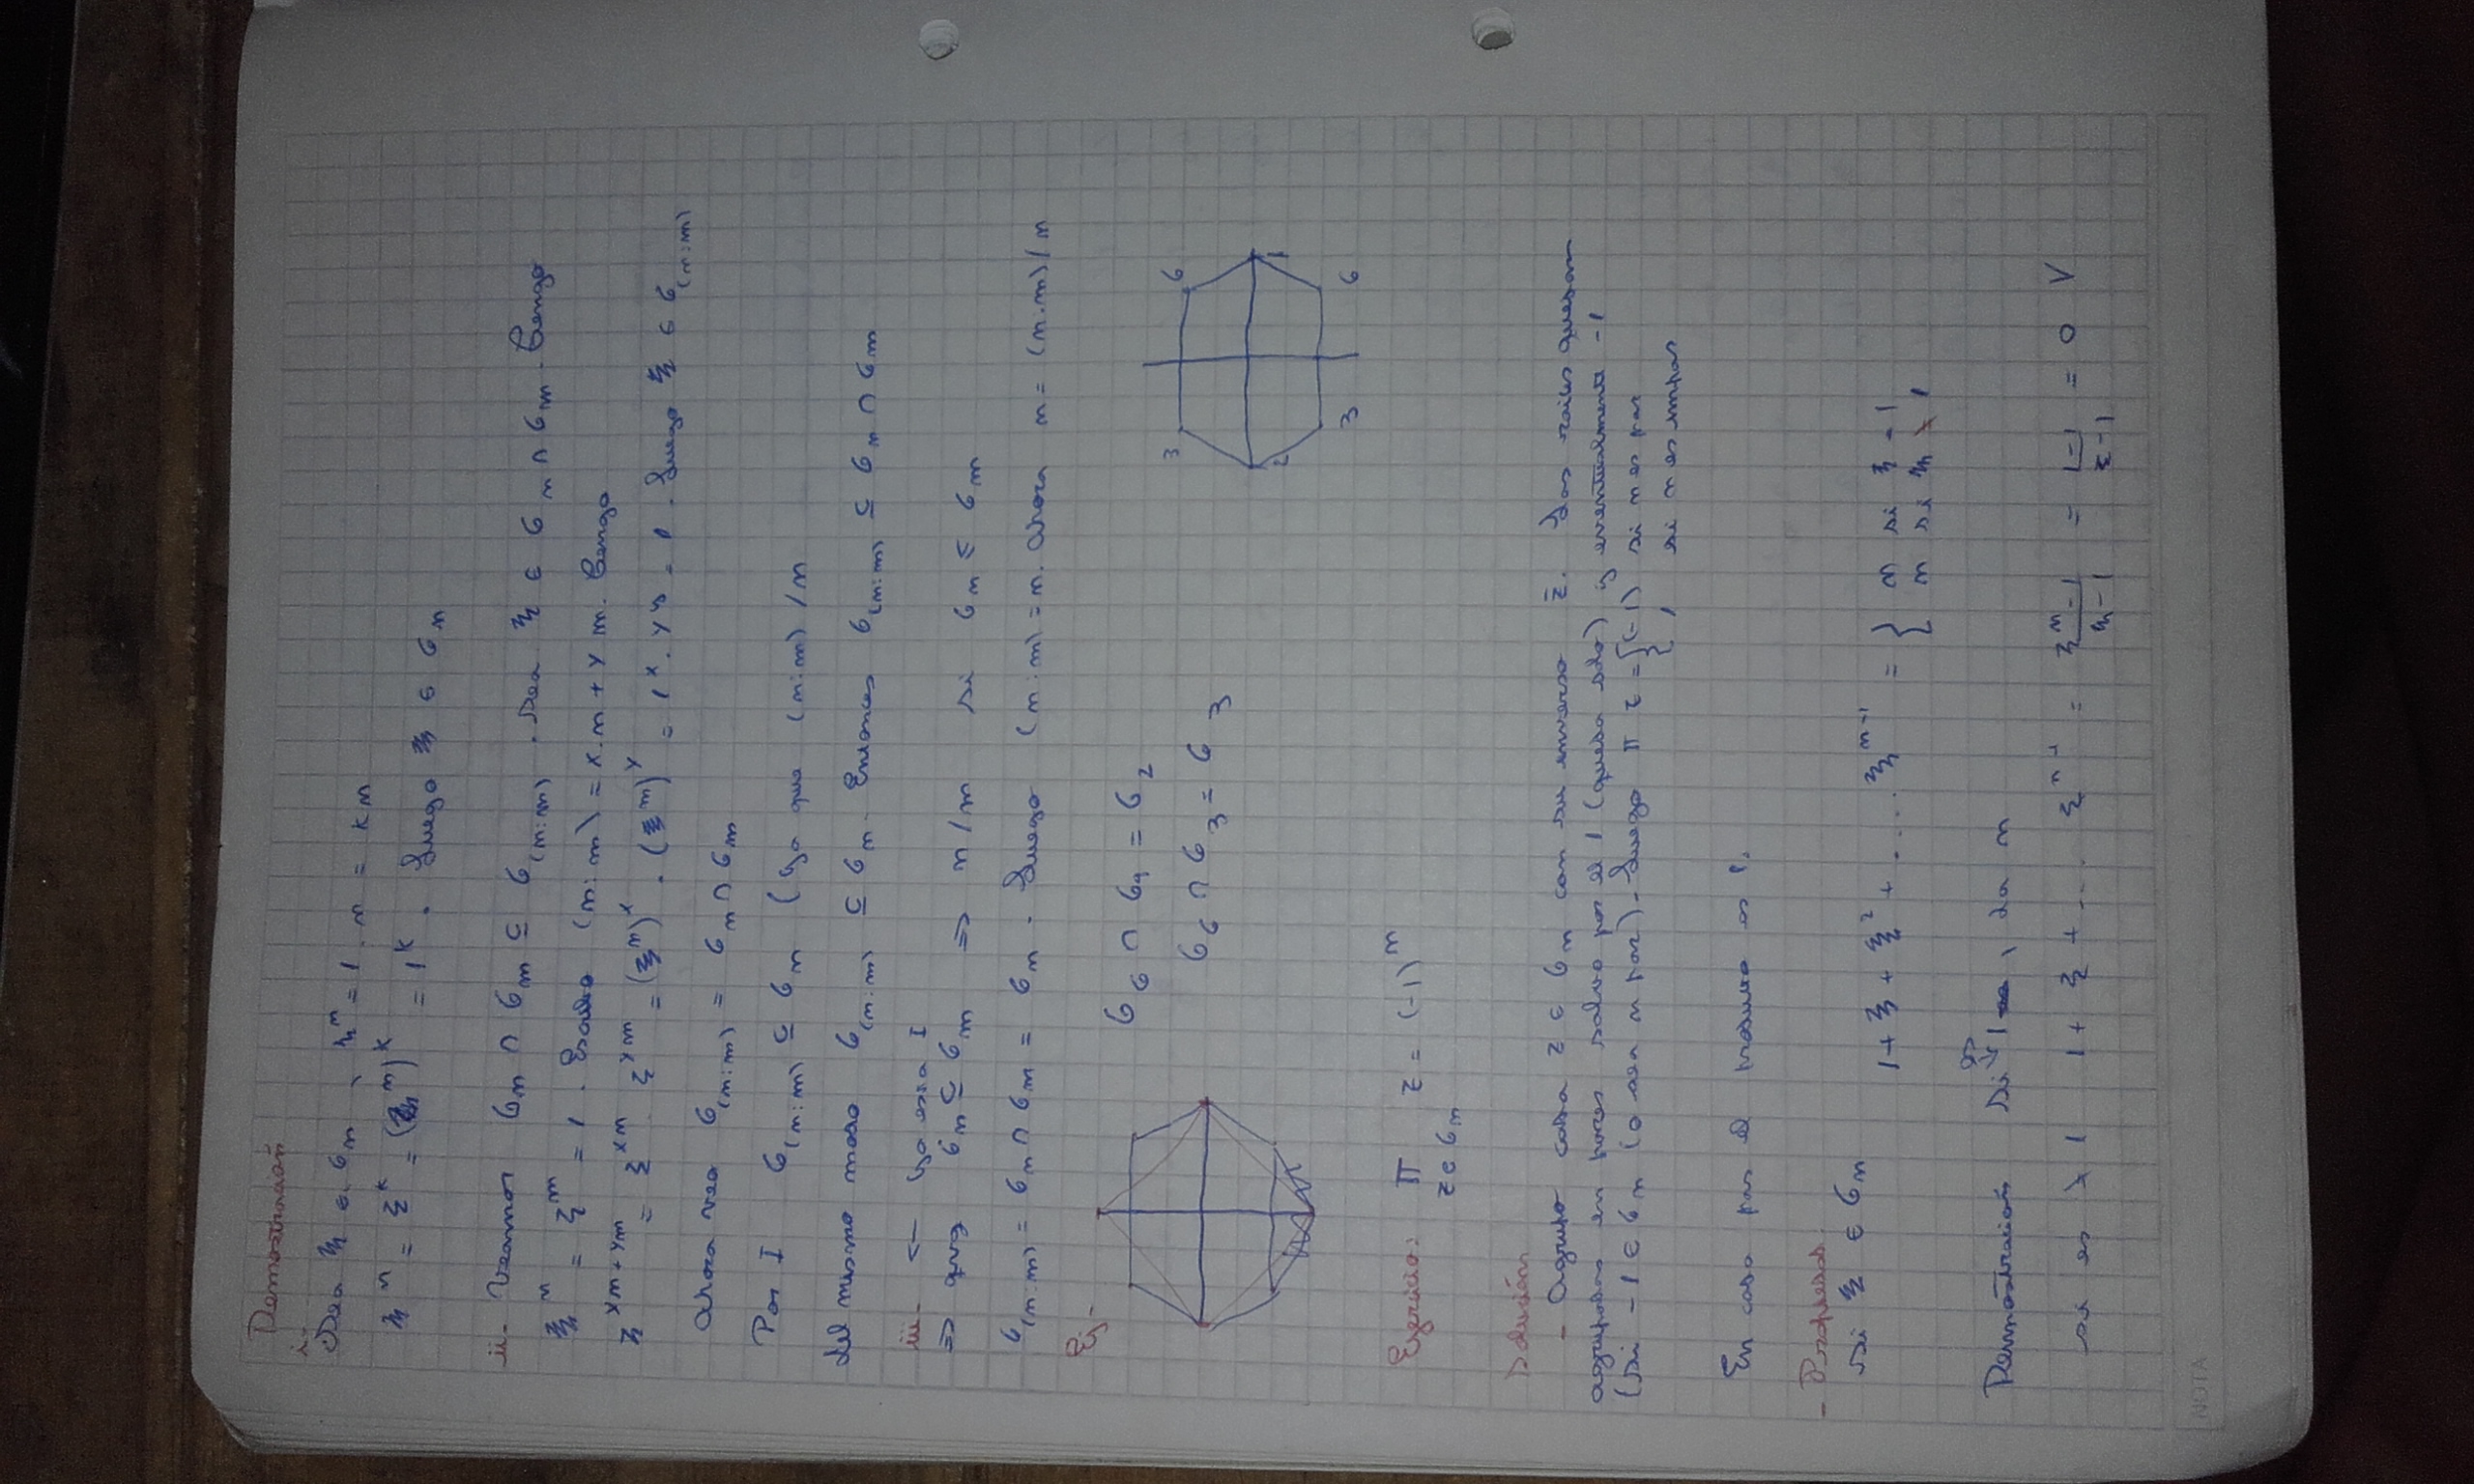 Demostración
i-
Sea ξ ∈ G_n , ξ^m = 1. n = k m
ξ^n = ξ^k = (ξ^m)^k = 1^k . Luego ξ ∈ G_n
ii- Veamos G_n ∩ G_m ⊆ G_(n:m) . Sea ξ ∈ G_n ∩ G_m. Tengo
ξ^n = ξ^m = 1 . Escribo (n:m) = x.n + y m. Tengo
ξ^xn+ym = ξ^xn . ξ^ym = (ξ^n)^x . (ξ^m)^y = 1^x . y^y = 1 . Luego ξ ∈ G_(n:m)
Ahora veo G_(n:m) = G_n ∩ G_m
Por I G_(n:m) ⊆ G_n ( ya que (n:m) / n
del mismo modo G_(n:m) ⊆ G_n. Entonces G_(n:m) ⊆ G_n ∩ G_m
iii- ⇐ ya está I
⇒ qvq G_n ⊆ G_m ⇒ n/m si G_n ⊆ G_m
G_(n:m) = G_n ∩ G_m = G_n . Luego (n:m) = n. Ahora n = (n:m)/n
Ej-
G_6 ∩ G_4 = G_2
G_6 ∩ G_3 = G_3
3 6
2 1
3 6
Ejercicio: Π z = (-1)^n
z ∈ G_n
Solución
- Agrupo cada z ∈ G_n con su inverso z̄. Las raíces quedan
agrupadas en pares salvo por el 1 (queda solo) y eventualmente -1
(si -1 ∈ G_n (o sea n par)- Luego Π z = { (-1) si n es par
{ 1 si n es impar
En cada par el producto es 1.
- Propiedad:
Si ξ ∈ G_n
1 + ξ + ξ^2 + .... ξ^n-1 = { n si ξ = 1
n si ξ ≠ 1
es
Demostración Si 1 , da n
si es ≠ 1 1 + ξ + ... ξ^n-1 = ξ^n - 1 / ξ - 1 = 1-1 / ξ-1 = 0 V
NOTA